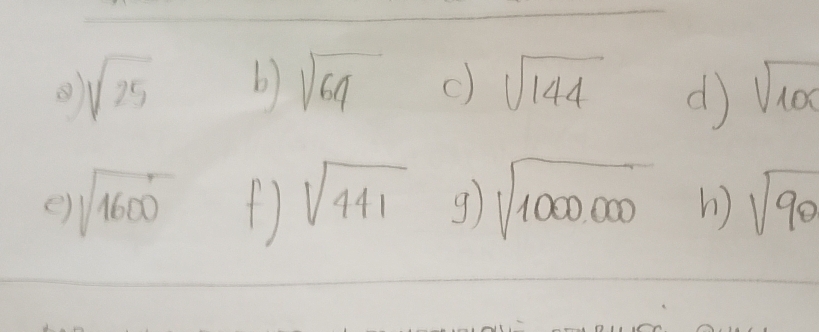 a) √25 b) √64 c) √144 d) √100
e) √1600 f) √441 g) √1000.000 h) √90